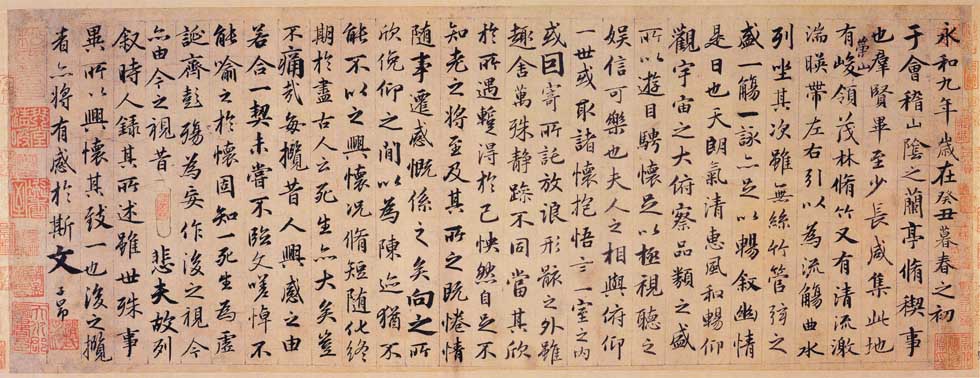 永和九年歲在癸丑暮春之初
于會稽山陰之蘭亭脩稧事
也羣賢畢至少長咸集此地
有崇山峻領茂林脩竹又有清流激
湍暎帶左右引以為流觴曲水
列坐其次雖無絲竹管弦之
盛一觴一詠亦足以暢叙幽情
是日也天朗氣清惠風和暢仰
觀宇宙之大俯察品類之盛
所以遊目騁懷足以極視聽之
娛信可樂也夫人之相與俯仰
一世或取諸懷抱悟言一室之內
或因寄所託放浪形骸之外雖
趣舍萬殊静躁不同當其欣
於所遇蹔得於己怏然自足不
知老之將至及其所之既惓情
随事遷感慨係之矣向之所
欣俛仰之間以為陳迹猶不
能不以之興懷况脩短随化終
期於盡古人云死生亦大矣豈
不痛哉每攬昔人興感之由
若合一契未嘗不臨文嗟悼不
能喻之於懷固知一死生為虛
誕齊彭殤為妄作後之視今
亦由今之視昔 悲夫故列
叙時人録其所述雖世殊事
異所以興懷其致一也後之攬
者亦將有感於斯文 子昂